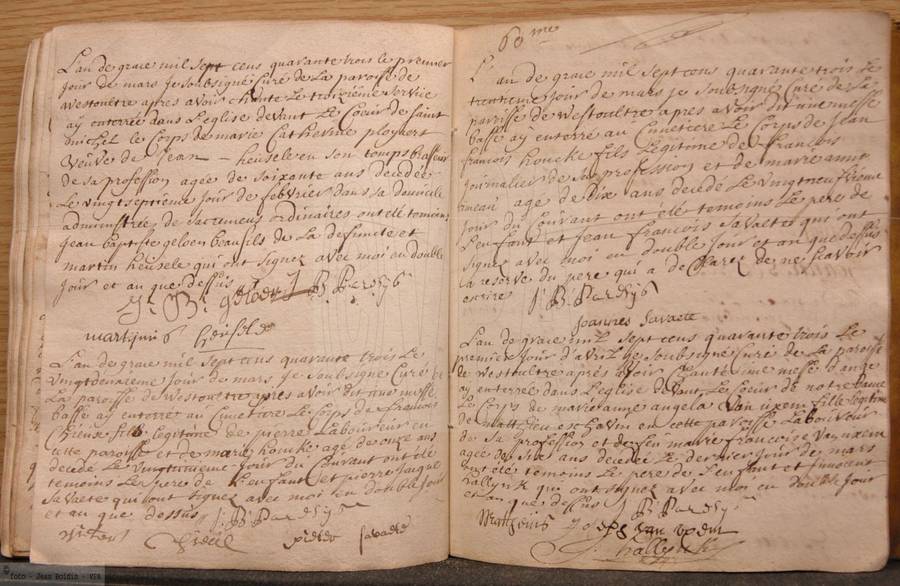 L'an de grace mil sept cens quarante trois le premier
jour de mars je soubsigné curé de la paroisse de
westoutre apres avoir chanté le troizième service
ay enterrée dans l'eglise devant le Coeur de saint
michel le Corps de marie Catherine
veuve de Jean heusele en son temps brasseur
de sa profession agée de soixante ans decedée
le vingtseptieme jour de febvrier dans sa domicile
administrée de sacremens ordinaires ont été temoins
jean baptiste geloen beaufils de la defuncte et
martin heusele qui ont signez avec moi en double
jour et an que dessus
J. B. geloen J B Bardys
martinus heusele
L'an de grace mil sept cens quarante trois le
vingtdeuxieme jour de mars, je soubsigné curé de
la paroisse de westoutre apres avoir dit une messe
basse ay enterré au Cimetiere le corps de francois
fils legitime de pierre Laboureur en
cette paroisse et de marie houcke agé de onze ans
decedé le jour du Courant ont été
temoins le pere de l'enfant et pierre jaque
Savaete qui ont signez avec moi en double jour
et an que dessus J B Bardys
pieter savaete
60 me
L'an de grace mil sept cens quarante trois le
trentieme jour de mars je soubsignez curé de la
paroisse de westoultre apres avoir dit une messe
basse ay enterré au Cimetiere le Corps de Jean
francois houcke fils legitime de francois
journalier de sa profession et de marie anne
agé de Dix ans decedé le vingtneufvieme
jour du Courant ont été temoins le pere de
l'enfant et jean francois Savaete qui ont
signez avec moi en double jour et an que dessus
la reserve du pere qui a declarez de ne scavoir
escrire J B Bardys
Joannes Savaete
L'an de grace mil sept cens quarante trois le
premier jour d'avril je soubsigné curé de la paroisse
de westoultre après avoir Chanté une messe d'ange
ay enterrée dans l'eglise devant le coeur de notre dame
le Corps de marie anne angela Van uxem fille legitime
de matthieu en cette paroisse Laboureur
de sa profession et de feu marie francoise Van uxem
agée de six ans decedée le dernier jour de mars
ont été temoins le pere de l'enfant et
hallynk qui ont signez avec moi en double jour
et an que dessus J B Bardys
Mattheus
Joseph
hallynck
© foto - Jean Boidin - VVA